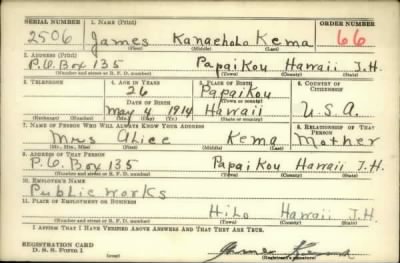 SERIAL NUMBER 1. NAME (Print) ORDER NUMBER
2506 James Kanaeholo Kema 66
(First) (Middle) (Last)
2. ADDRESS (Print)
P.O. Box 135 Papaikou Hawaii T.H.
(Number and street or R. F. D. number) (Town) (County) (State)
3. TELEPHONE 4. AGE IN YEARS 5. PLACE OF BIRTH 6. COUNTRY OF CITIZENSHIP
26 Papaikou
DATE OF BIRTH (Town or county)
May 4 1914 Hawaii U.S.A.
(Mo.) (Day) (Yr.) (State or country)
7. NAME OF PERSON WHO WILL ALWAYS KNOW YOUR ADDRESS 8. RELATIONSHIP OF THAT PERSON
Mrs Alice Kema Mother
(Mr., Mrs., Miss) (First) (Middle) (Last)
9. ADDRESS OF THAT PERSON
P.O. Box 135 Papaikou Hawaii T.H.
(Number and street or R. F. D. number) (Town) (County) (State)
10. EMPLOYER'S NAME
Public Works
11. PLACE OF EMPLOYMENT OR BUSINESS
Hilo Hawaii T.H.
(Number and street or R. F. D. number) (Town) (County) (State)
I AFFIRM THAT I HAVE VERIFIED ABOVE ANSWERS AND THAT THEY ARE TRUE.
REGISTRATION CARD
D. S. S. Form 1 James Kema
(Registrant's signature)